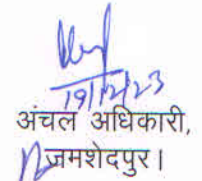 19/12/23
अंचल अधिकारी,
जमशेदपुर।